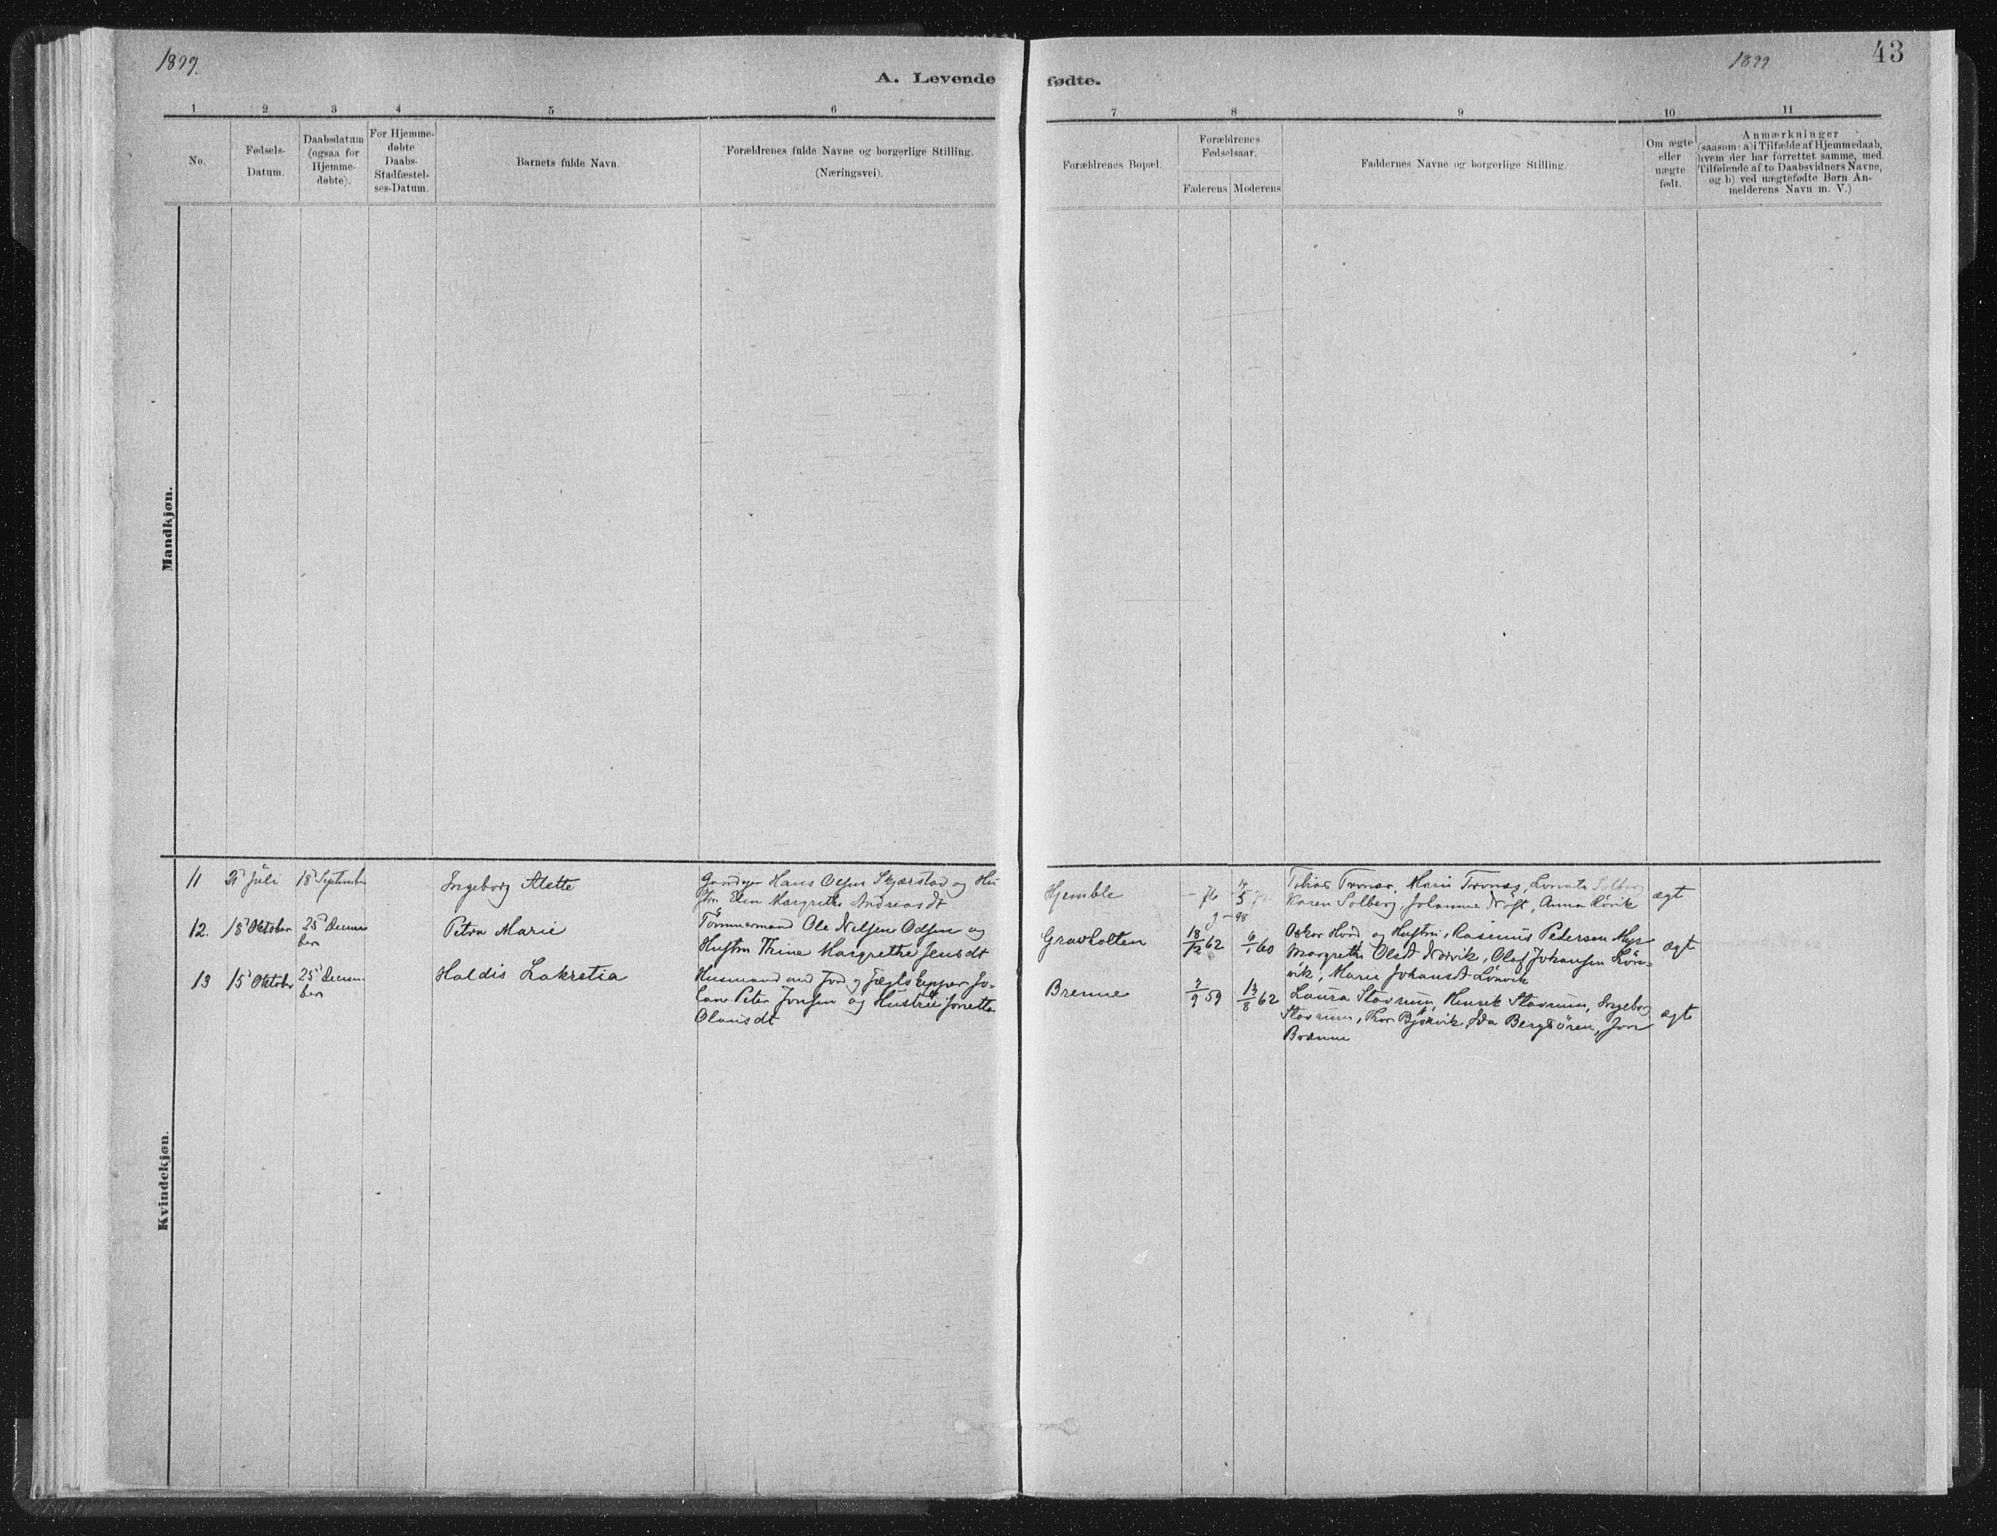 1899.
1899
43
A. Levende fødte.
1 2 3 4 5 6 7 8 9 10 11
No.
Fødsels-
Datum.
Daabsdatum
(ogsaa for
Hjemme-
døbte).
For Hjemme-
døbte
Daabs-
Stadfæstel-
ses-Datum.
Barnets fulde Navn.
Forældrenes fulde Navne og borgerlige Stilling.
(Næringsvei).
Forældrenes Bopæl.
Forældrenes
Fødselsaar.
Faderens Moderens
Faddernes Navne og borgerlige Stilling.
Om ægte
eller
uægte
født.
Anmærkninger
(saasom: a) i Tilfælde af Hjemmedaab,
hvem der har forrettet samme, med
Tilføiende af to Daabsvidners Navne,
og b) ved uægtefødte Børn An-
melderens Navn m. V.)
Mandkjøn.
Kvindekjøn.
11 Juli 18 September Ingeborg Alette
Hans Olsen Skjærstad og Hu
stru Elen Margrethe Andreasdt
Hjemble - 76
Tobias Trones, Marie Trones, Solberg
Karen Solberg, Johanne Anna
ægt
12. 18 Oktober 25 Decem
ber
Petra Marie
Tømmermand Ole Nelsen Odsen og
Hustru Thine Margrethe Jensdt
Gravholten 18/12 62 6/1 60
Oskar og Hustru, Rasmus Pedersen
Margrethe Olsdt Olaf Johansen
Marie Johansdt Lørvik
ægt
13 15 Oktober 25 Decem
ber
Haldis Lakretia
Husmand med Jord og Jo-
han Peter Jonsen og Hustru Jonetta
Olausdt
Brenne 7/9 59 13/8 62
Laura Stavrum, Henrik Stavrum, Ingeborg
Stavrum, Ida Bergsøren, Jon
Brenne
ægt